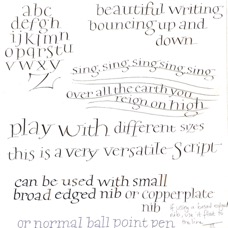 abc
defgh
ijklmn
opqrstu
vwxy
z
beautiful writing
bouncing up and
down
sing, sing, sing sing sing
over all the earth you
reign on high
play with different sizes
this is a very versatile script
can be used with small
broad edged nib or copperplate
nib
or normal ball point pen
if using a broad edged
nib, use it